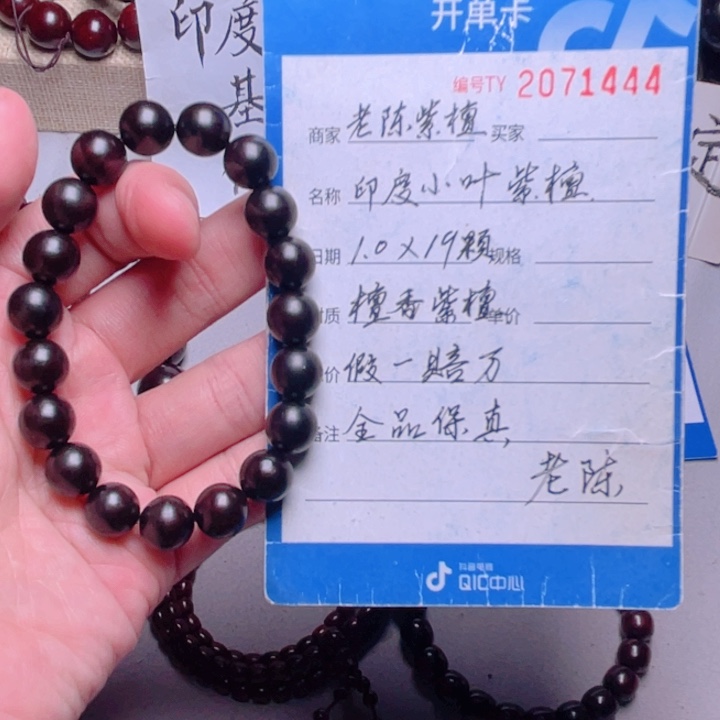 印度
基
开单卡
编号TY 2071444
商家 老陈紫檀 买家
名称 印度小叶紫檀
日期 1.0×19颗 规格
质 檀香紫檀 单价
价 假一赔万
备注 全品保真,
老陈,
抖音电商
QIC中心
定